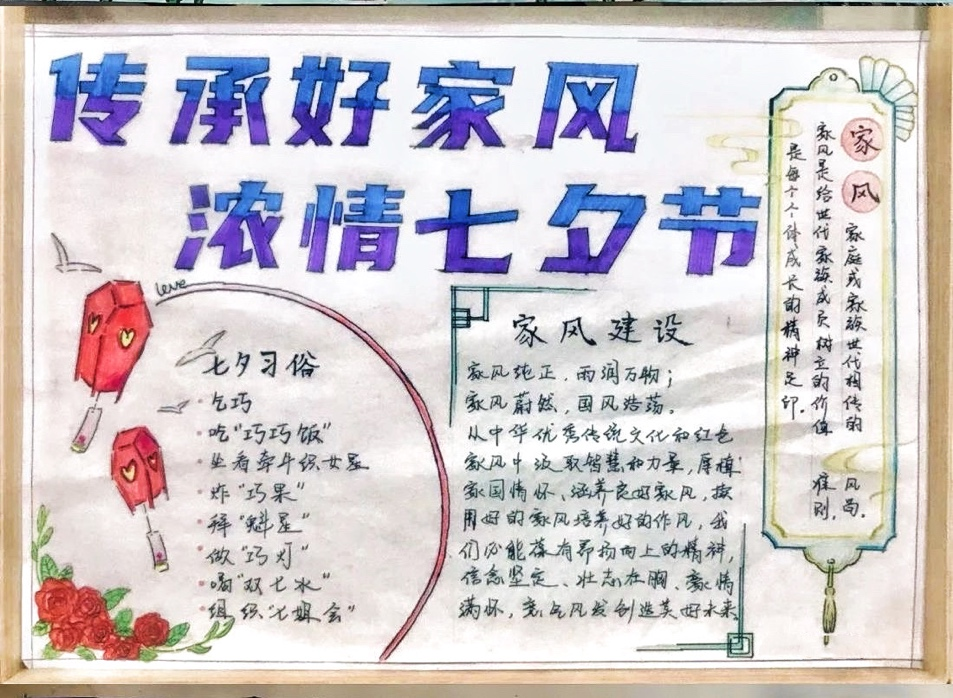 传承好家风
浓情七夕节
love
七夕习俗
乞巧
吃"巧巧饭"
坐看牵牛织女星
炸"巧果"
拜"魁星"
做"巧灯"
喝"双七水"
组织"七姐会"
家风建设
家风纯正,雨润万物;
家风蔚然,国风浩荡。
从中华优秀传统文化和红色
家风中汲取智慧和力量,厚植
家国情怀、涵养良好家风,
用好的家风培养好的作风,我
们必能葆有昂扬向上的精神,
信念坚定、壮志在胸、豪情
满怀,意气风发创造美好未来
家风 家庭或家族世代相传的风尚。
家风是给世代家族成员树立的价值准则,
是每个个体成长的精神足印。